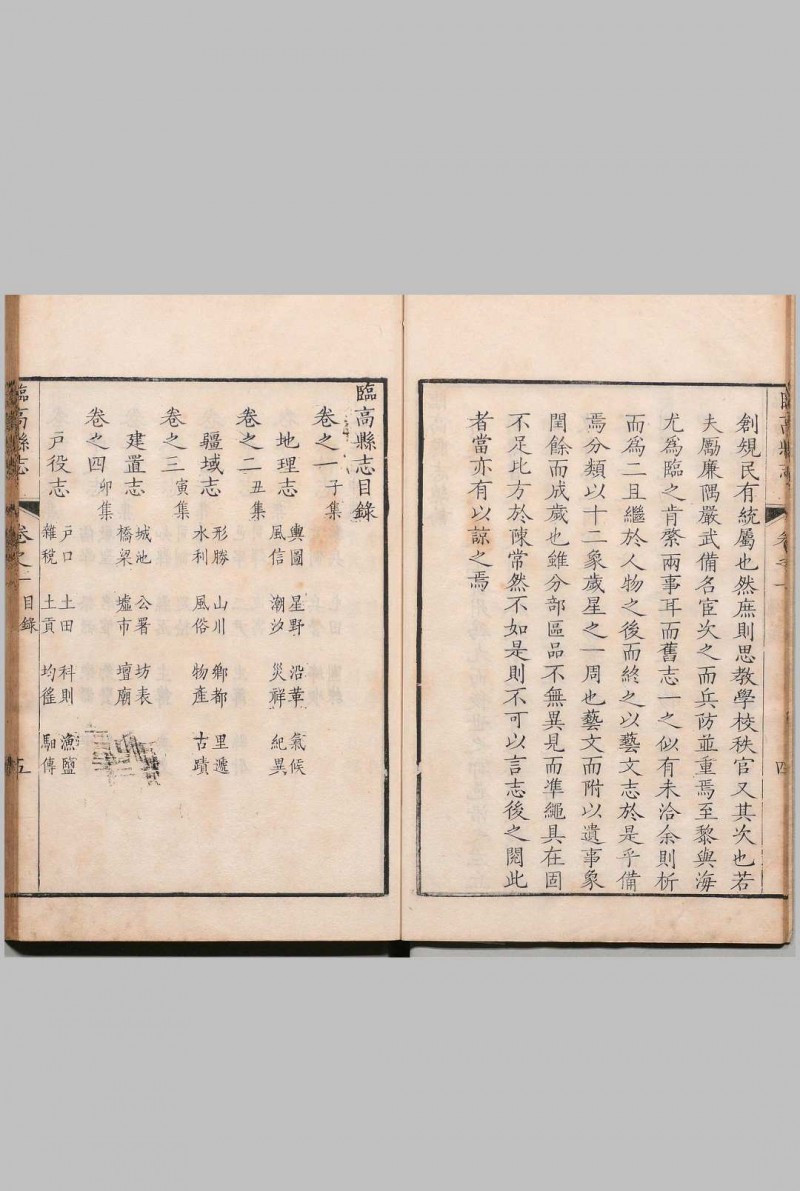 創規民有統屬也然庶則思教學校秩官又其次也若
夫勵廉隅嚴武備名宦次之而兵防並重焉至黎與海
尤為臨之肯綮兩事耳而舊志一之似有未洽余則析
而為二且繼於人物之後而終之以藝文志於是乎備
焉分類以十二象歲星之一周也藝文而附以遺事象
閏餘而成歲也雖分部區品不無異見而準繩具在固
不足比方於陳常然不如是則不可以言志後之閱此
者當亦有以諒之焉
臨高縣志目錄
卷之一 子集
地理志 輿圖 星野 沿革 氣候
風信 潮汐 災祥 紀異
卷之二 丑集
疆域志 形勝 山川 鄉都 里遞
水利 風俗 物產 古蹟
卷之三 寅集
建置志 城池 公署 坊表
橋梁 墟市 壇廟
卷之四 卯集
戶役志 戶口 土田 科則 漁鹽
雜稅 土貢 均徭 馹傳
臨高縣志 卷之一 目錄 五